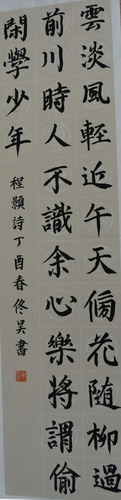 雲淡風輕近午天傍花隨柳過
前川時人不識余心樂將謂偷
閑學少年
程顥詩丁酉春佟吴書